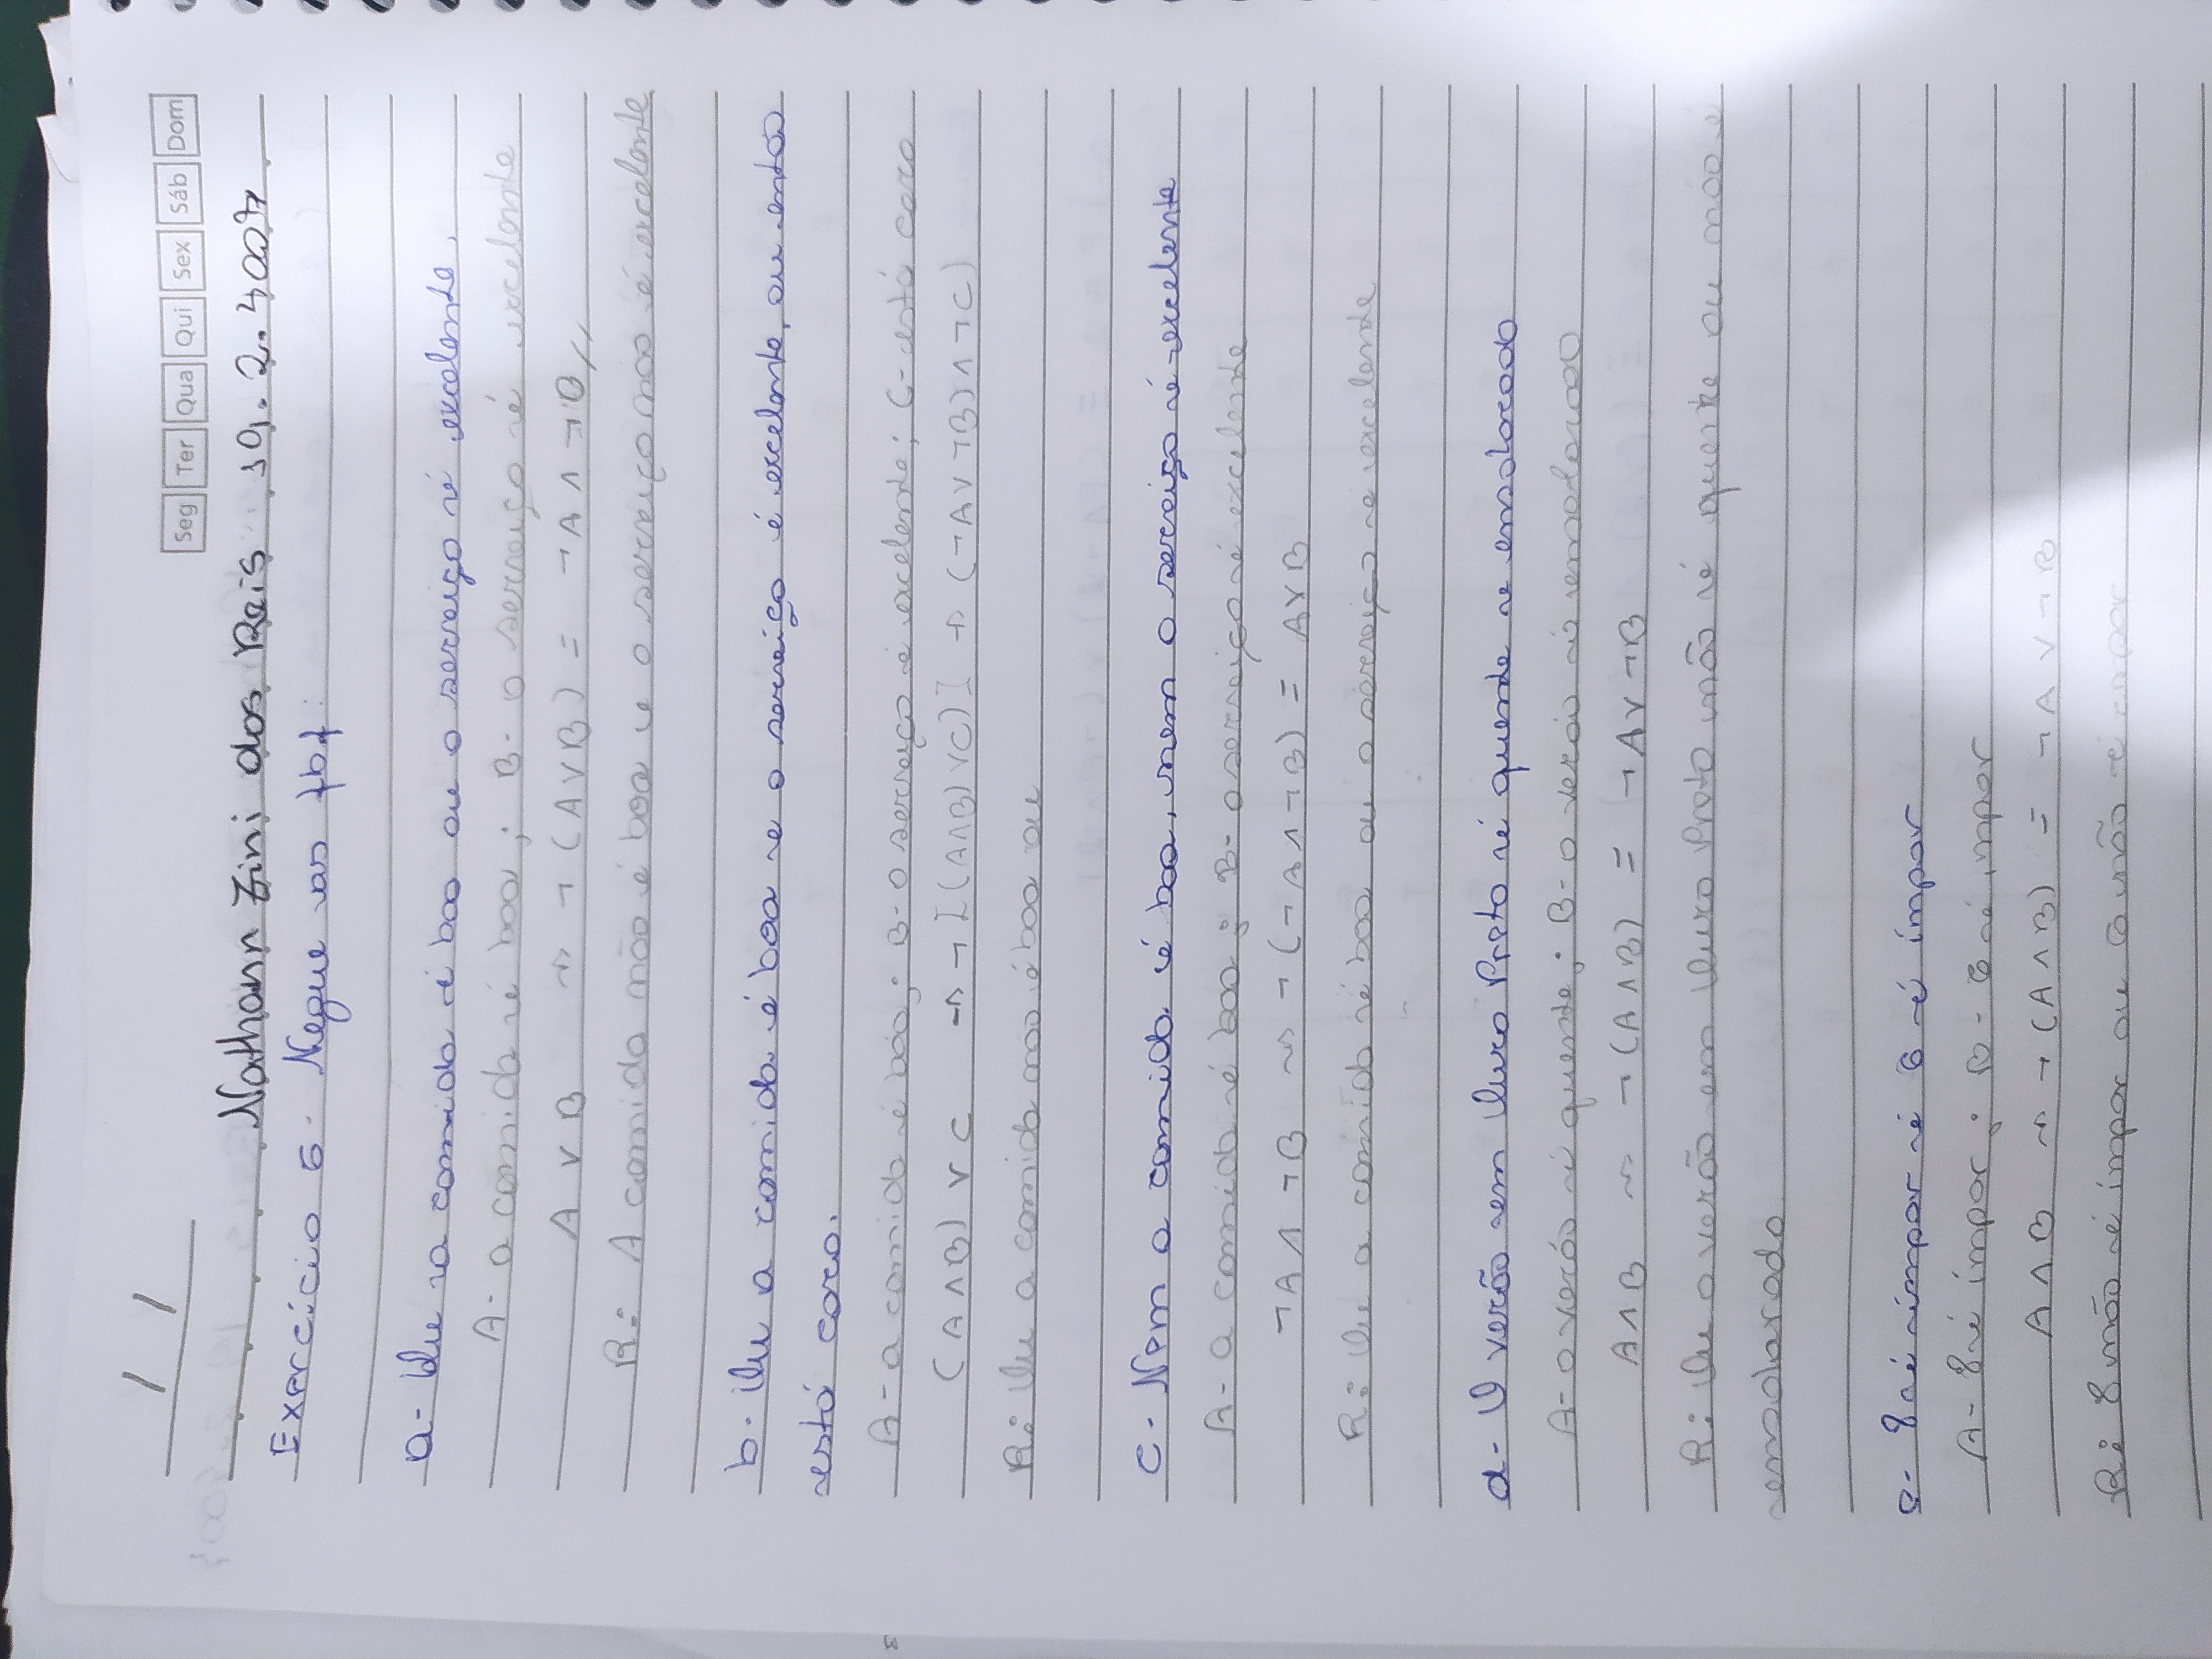 / /
Seg Ter Qua Qui Sex Sáb Dom
Nathann Zini dos Reis 19.2.4007
Exercício 6. Negue as fbf:
a- Ou a comida é boa ou o serviço é excelente.
A- a comida é boa; B- o serviço é excelente
A ∨ B ⇝ ¬(A∨B) = ¬A ∧ ¬B //
R: A comida não é boa e o serviço não é excelente
b- Ou a comida é boa e o serviço é excelente, ou então
está caro.
A- a comida é boa; B- o serviço é excelente; C- está caro
(A∧B) ∨ C → ¬[(A∧B)∨C)] → (¬A∨¬B)∧¬C)
R: Ou a comida não é boa ou
c- Nem a comida é boa, nem o serviço é excelente
A- a comida é boa; B- o serviço é excelente
¬A∧ ¬B ⇝ ¬(¬A∧¬B) = A∨B
R: Ou a comida é boa ou o serviço é excelente
d- O verão em Ouro Preto é quente e ensolarado
A- o verão é quente; B- o verão é ensolarado
A∧B ⇝ ¬(A∧B) = ¬A∨¬B
R: Ou o verão em Ouro Preto não é quente ou não é
ensolarado
e- 8 é ímpar é 6 é ímpar
A- 8 é ímpar; B- 6 é ímpar
A∧B ⇝ ¬(A∧B) = ¬A∨¬B
R: 8 não é ímpar ou 6 não é ímpar